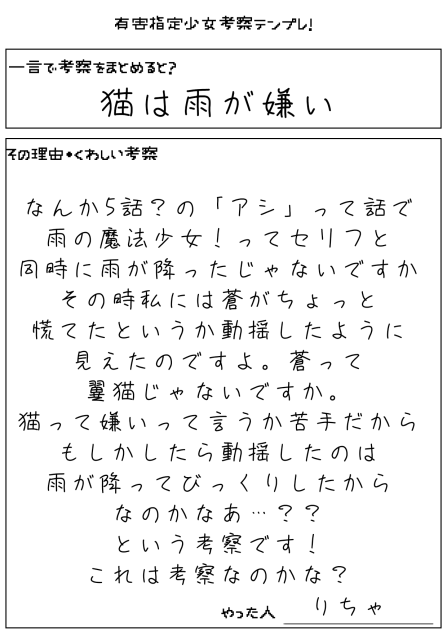 有害指定少女考察テンプレ!
一言で考察をまとめると?
猫は雨が嫌い
その理由•くわしい考察
なんか5話?の「アシ」って話で
雨の魔法少女!ってセリフと
同時に雨が降ったじゃないですか
その時私には蒼がちょっと
慌てたというか動揺したように
見えたのですよ。蒼って
翼猫じゃないですか。
猫って嫌いって言うか苦手だから
もしかしたら動揺したのは
雨が降ってびっくりしたから
なのかなあ…??
という考察です!
これは考察なのかな?
やった人 りちゃ